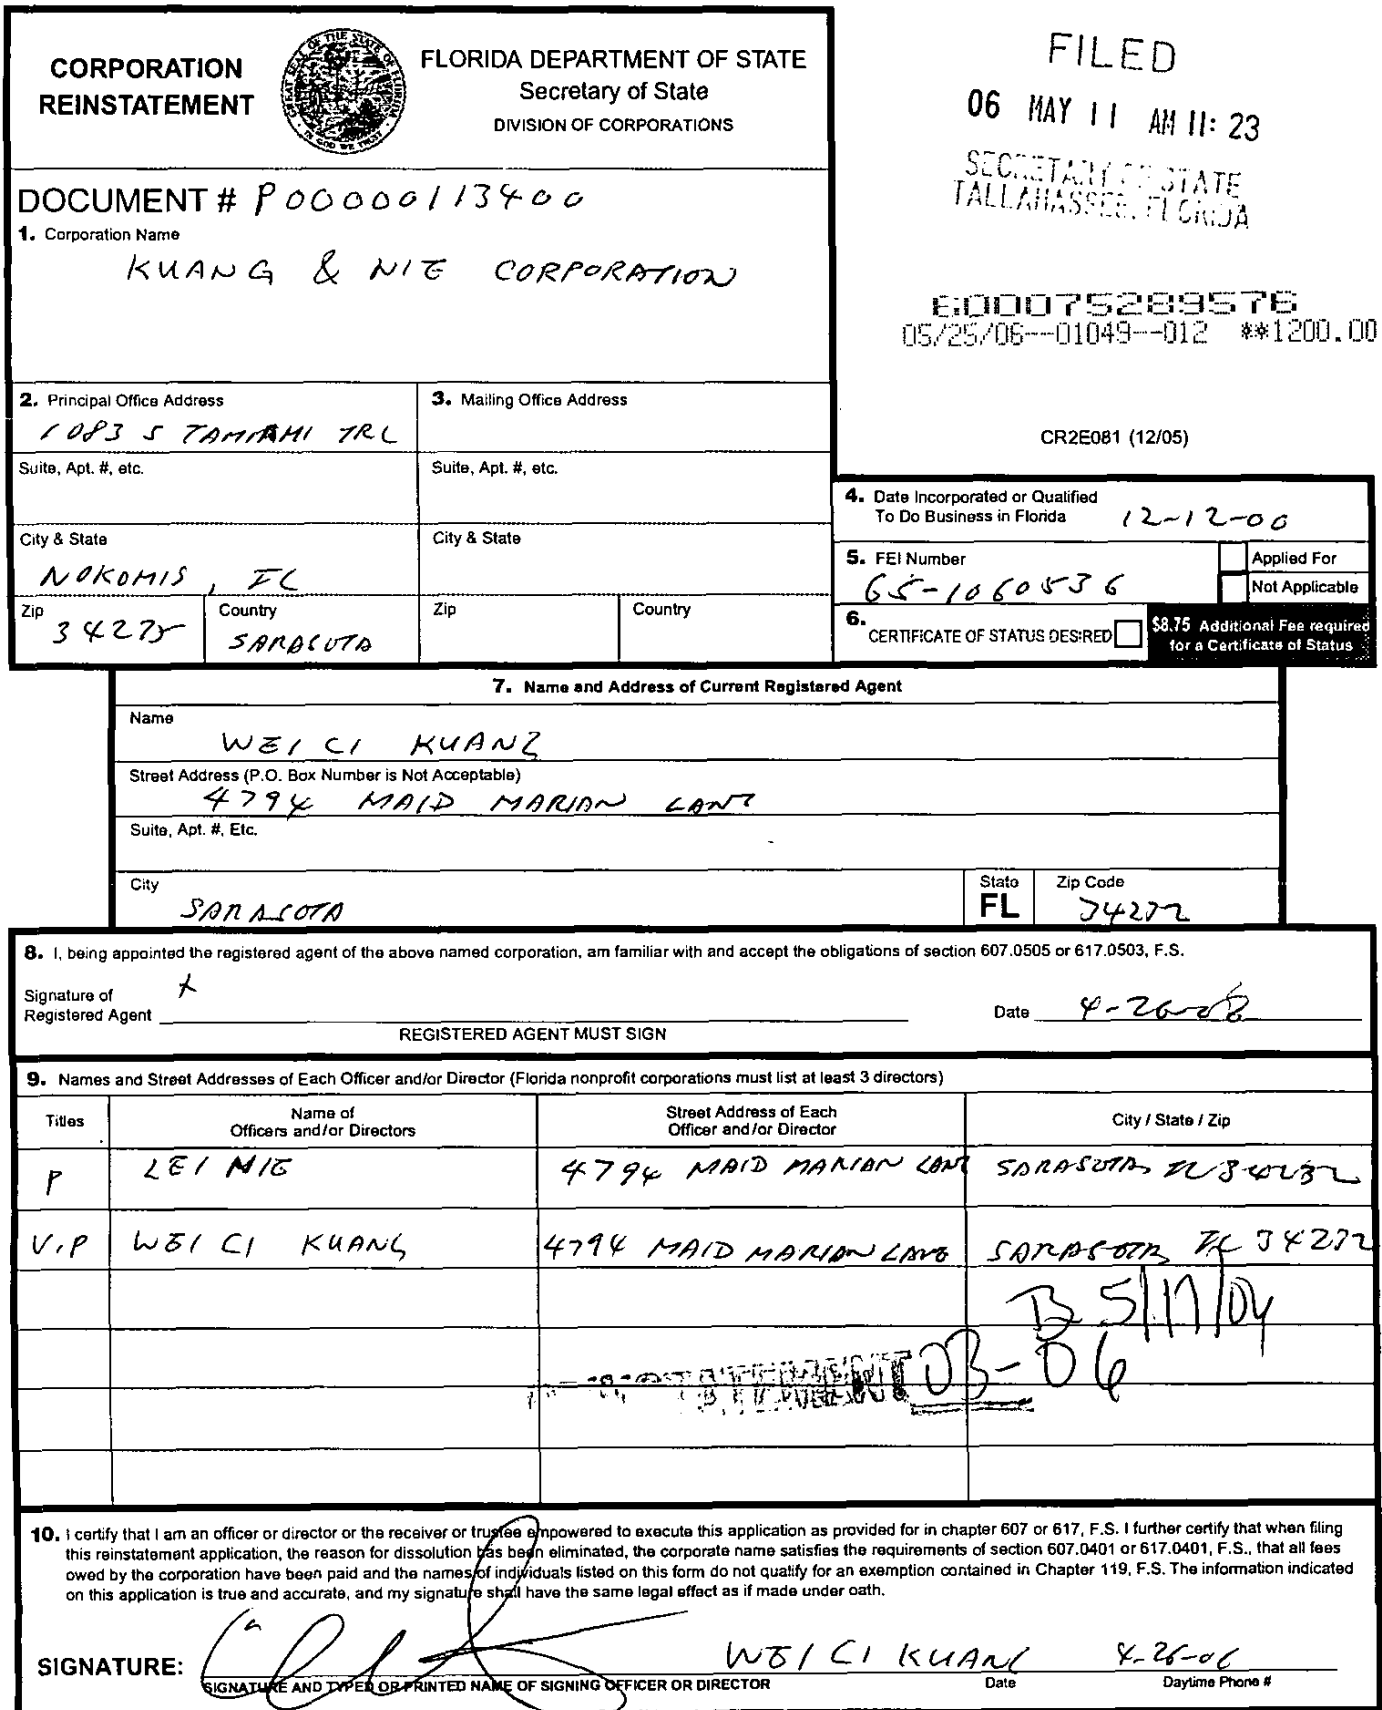 CORPORATION
REINSTATEMENT
GREAT SEAL OF THE STATE OF FLORIDA
IN GOD WE TRUST
FLORIDA DEPARTMENT OF STATE
Secretary of State
DIVISION OF CORPORATIONS
FILED
06 MAY 11 AM 11: 23
SECRETARY OF STATE
TALLAHASSEE, FLORIDA
DOCUMENT # P00000113400
1. Corporation Name
KUANG & NIE CORPORATION
600075289576
05/25/06--01049--012 **1200.00
2. Principal Office Address
1083 S TAMIAMI TRL
3. Mailing Office Address
CR2E081 (12/05)
Suite, Apt. #, etc.
Suite, Apt. #, etc.
4. Date Incorporated or Qualified
To Do Business in Florida 12-12-00
City & State
NOKOMIS, FL
City & State
5. FEI Number
65-1060536
Applied For
Not Applicable
Zip
34275
Country
SARASOTA
Zip
Country
6. CERTIFICATE OF STATUS DESIRED
$8.75 Additional Fee required
for a Certificate of Status
7. Name and Address of Current Registered Agent
Name
WEI CI KUANG
Street Address (P.O. Box Number is Not Acceptable)
4794 MAID MARIAN LANE
Suite, Apt. #, Etc.
City
SARASOTA
State
FL
Zip Code
34232
8. I, being appointed the registered agent of the above named corporation, am familiar with and accept the obligations of section 607.0505 or 617.0503, F.S.
Signature of
Registered Agent
x
Date 4-26-
REGISTERED AGENT MUST SIGN
9. Names and Street Addresses of Each Officer and/or Director (Florida nonprofit corporations must list at least 3 directors)
Titles
Name of
Officers and/or Directors
Street Address of Each
Officer and/or Director
City / State / Zip
P LEI NIE 4794 MAID MARIAN LANE SARASOTA, FL 34232
V.P WEI CI KUANG 4794 MAID MARIAN LANE SARASOTA FL 34232
B 5/17/04
REINSTATEMENT 03-06
10. I certify that I am an officer or director or the receiver or trustee empowered to execute this application as provided for in chapter 607 or 617, F.S. I further certify that when filing
this reinstatement application, the reason for dissolution has been eliminated, the corporate name satisfies the requirements of section 607.0401 or 617.0401, F.S., that all fees
owed by the corporation have been paid and the names of individuals listed on this form do not qualify for an exemption contained in Chapter 119, F.S. The information indicated
on this application is true and accurate, and my signature shall have the same legal effect as if made under oath.
SIGNATURE:
WEI CI KUANG 4-26-06
SIGNATURE AND TYPED OR PRINTED NAME OF SIGNING OFFICER OR DIRECTOR
Date
Daytime Phone #